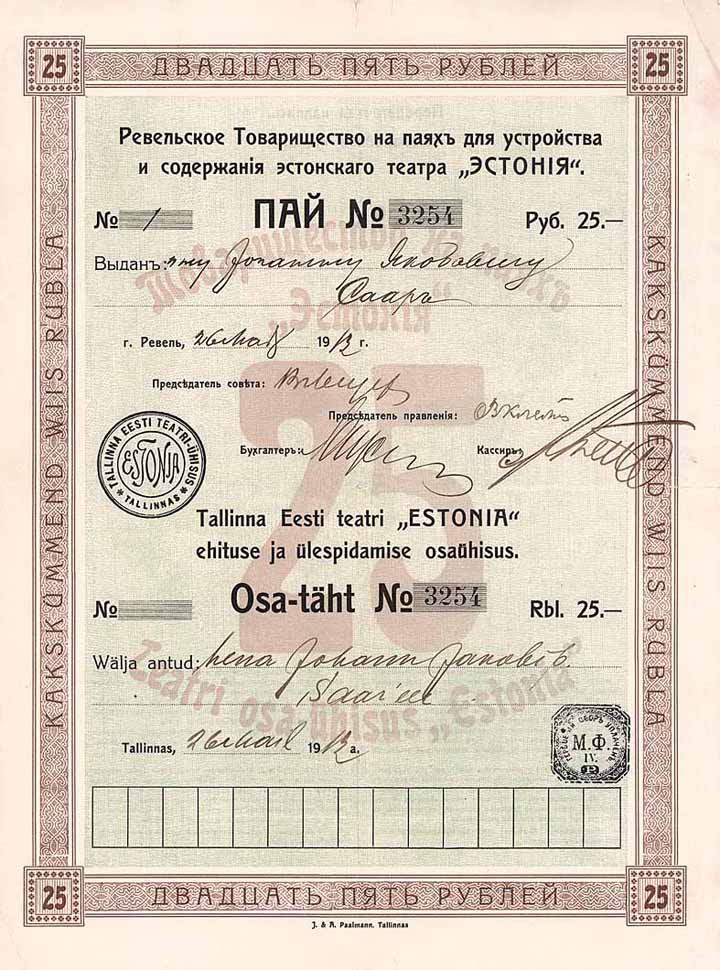 25 ДВАДЦАТЬ ПЯТЬ РУБЛЕЙ 25
KAKSKÜMMEND WIIS RUBLA
KAKSKÜMMEND WIIS RUBLA
Ревельское Товарищество на паяхъ для устройства
и содержанія эстонскаго театра „ЭСТОНІЯ“.
№ 1 ПАЙ № 3254 Руб. 25.—
Товарищество на паяхъ
„Эстонія“
25
Выданъ: Іоганну Яковлевичу
Сааръ
г. Ревель, 26 Май 1912 г.
Предсѣдатель совѣта:
Предсѣдатель правленія:
Бухгалтеръ: Кассиръ:
TALLINNA EESTI TEATRI-ÜHISUS
ESTONIA
* TALLINNAS *
Tallinna Eesti teatri „ESTONIA“
ehituse ja ülespidamise osaühisus.
№ Osa-täht № 3254 Rbl. 25.—
Wälja antud: hena Johann Jakobi p.
Saar'ele
Teatri osa-ühisus „Estonia“
Tallinnas, 26 Mail 1912 a.
СБОРЪ
М.Ф.
IV.
25 ДВАДЦАТЬ ПЯТЬ РУБЛЕЙ 25
J. & A. Paalmann, Tallinnas